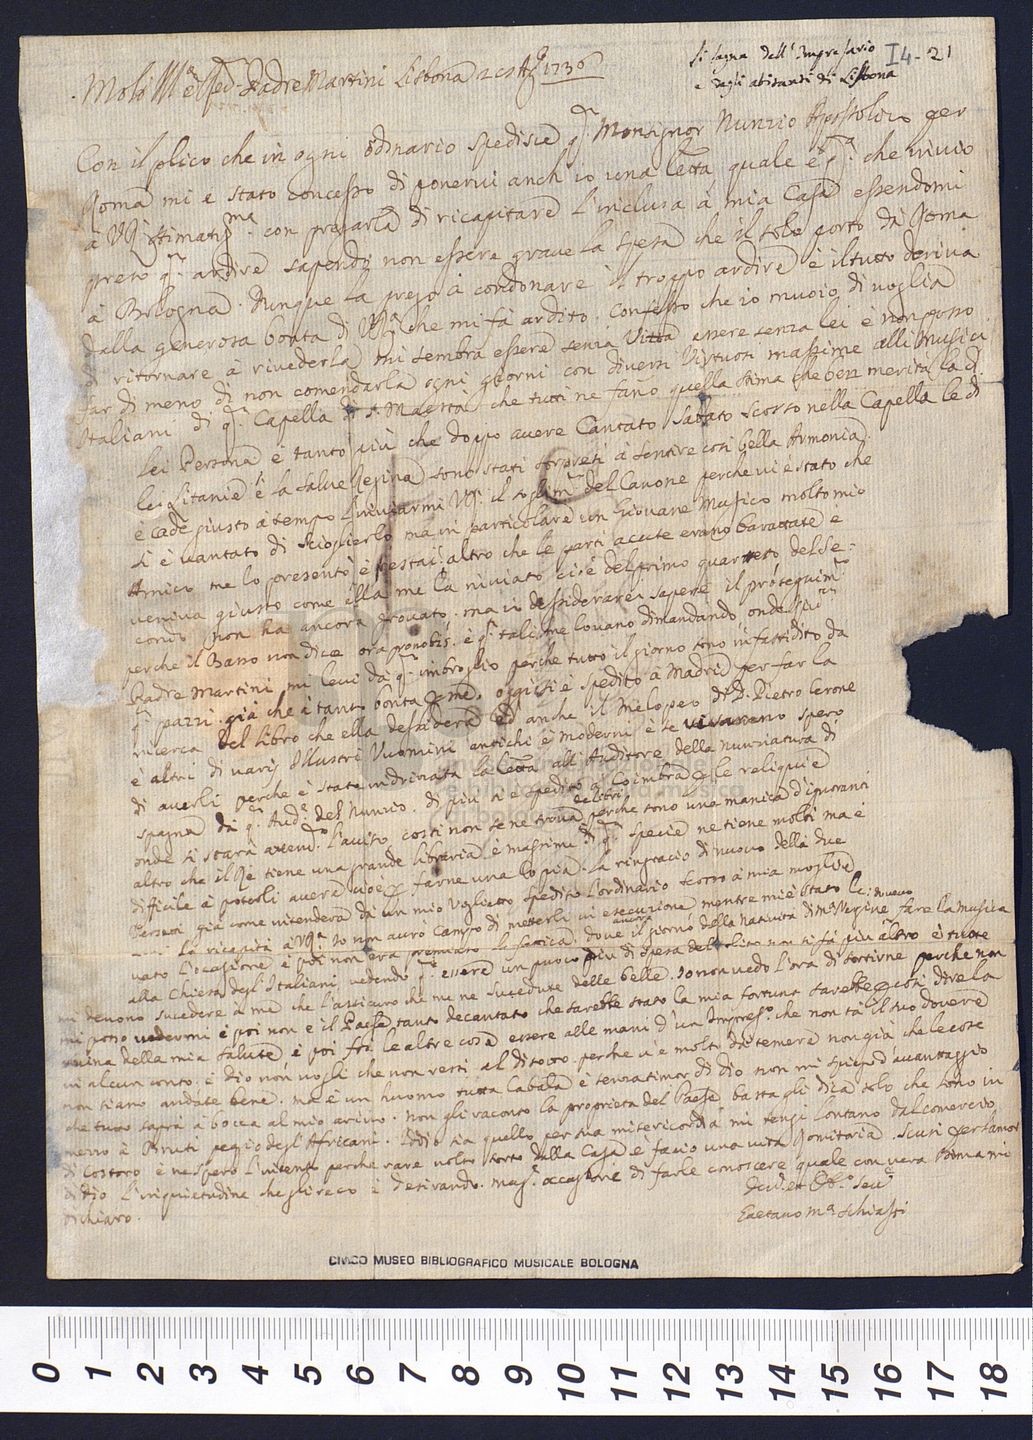 si lagna dell'Impresario I4-21
e degli abitanti di Lisbona
Molto Ill.e e Rev. Padre Martini Lisbona 1736
Con il plico che in ogni ordinario spedisce q. Monsignor Nunzio Apostolico per
Roma mi è stato concesso di ponervi anch'io una Letta quale è q.a che invio
à VR. stimatiss.ma con pregarla di ricapitare l'inclusa à mia Casa essendomi
preso q. ardire sapendo non essere grave la spesa che il solo porto da Roma
à Bologna. Dunque la prego à condonare il troppo ardire è il tutto deriva
dalla generosa bontà di VR. che mi fà ardito. Confesso che io muoio di voglia
ritornare à rivederla mi sembra essere senza Vitta essere senza lei è non posso
far di meno di non comendarla ogni giorni con diversi Virtuosi massime alli Musici
Italiani di q. Capella di S. Maestà che tutti ne fano quella stima che ben merita la di
Lei Persona è tanto più che doppo avere Cantato Sabato scorso nella Capella le di
lei Litanie è la Salve Regina sono stati sorpresi à sentire così bella Armonia
è cade giusto à tempo l'inviarmi VR. il del Canone perche vi è stato che
si è vantato di sciogierlo ma in particolare un Giovane Musico molto mio
Amico me lo presentò è restai altro che le parti acute erano barattate è
veniva giusto come ella me la inviato cioè del primo quartetto del se:
condo non ha ancora trovato. ma si dessiderarei sapere il proseguim.to
perche il Basso non dice ora pronobis. è q. tali me lo vano dimandando, onde
Padre Martini mi levi da q. imbroglio perche tutto il giorno sono infastidito da
q. pazzi. già che è tanta bontà p me. oggi si è spedito à Madrid per far la
ricerca del libro che ella dessidera ed anche il Melopeo di D. Pietro Cerone
è altri di varij Illustri Vuomini antichi è moderni è se vi saranno spero
di averli perche è stata indrizata la Letta all'Auditore della Nunziatura di
Spagna da q. Aud.e del Nunzio. di più si è spedito à Coimbra delle reliquie
onde si starà l'aviso costi non se ne trova de libri perche sono una manica d'ignoranti
altro che il Rè tiene una grande libraria, è massime di q. specie ne tiene molti ma è
difficile à poterli avere farne una Copia. La ringracio di nuovo della due
Persetti già come intenderà da un mio Viglietto spedito l'ordinario scorso à mia moglie
La ricapiti à VR. Io non aurò Campo di meterli in esecuzione mentre mi è stato le: di nuovo
vato l'occasione è poi non era premiato la fatica. dove il giorno ancora della Natività di M. Vergine fare la Musica
alla Chiesa degl'Italiani vedendo q. essere un puoco più di spesa del solito non si fà più altro è tutte
mi devono succedere à me che l'assicuro che me ne succedute delle belle. Io non vedo l'ora di sortirne perche non
mi posso vedermi è poi non è il Paese tanto decantato che sarebbe stato la mia fortuna sarebbe così dire la
ruina della mia salute è poi frà le altre cose essere alle mani d'un Impres.o che non fà il suo dovere
in alcun conto. è Dio non vogli che non resti al di sotto perche vi è molto da temere non già che le cose
non siano andate bene. ma è un huomo tutta Cabala è senza timor di Dio non mi spiego d'avantaggio
che tutto saprà à bocca al mio arivo. non gli raconto la proprietà del Paese basta gli dica solo che sono in
mezzo à Bruti pegio degl'Africani. Iddio sia quello per sua misericordia mi tengi lontano dal comercio
di Costoro è ne spero l'intento perche rare volte sorto dalla Casa è facio una vita Romitoria. Scusi per l'amor
di Dio l'inquietudine che gli reco è desirando mag. occasione di farle conoscere quale con vera stima mi
dichiaro.
Gaetano M.a Schiassi
museo internazionale
e biblioteca della musica
di bologna
CIVICO MUSEO BIBLIOGRAFICO MUSICALE BOLOGNA
0 1 2 3 4 5 6 7 8 9 10 11 12 13 14 15 16 17 18